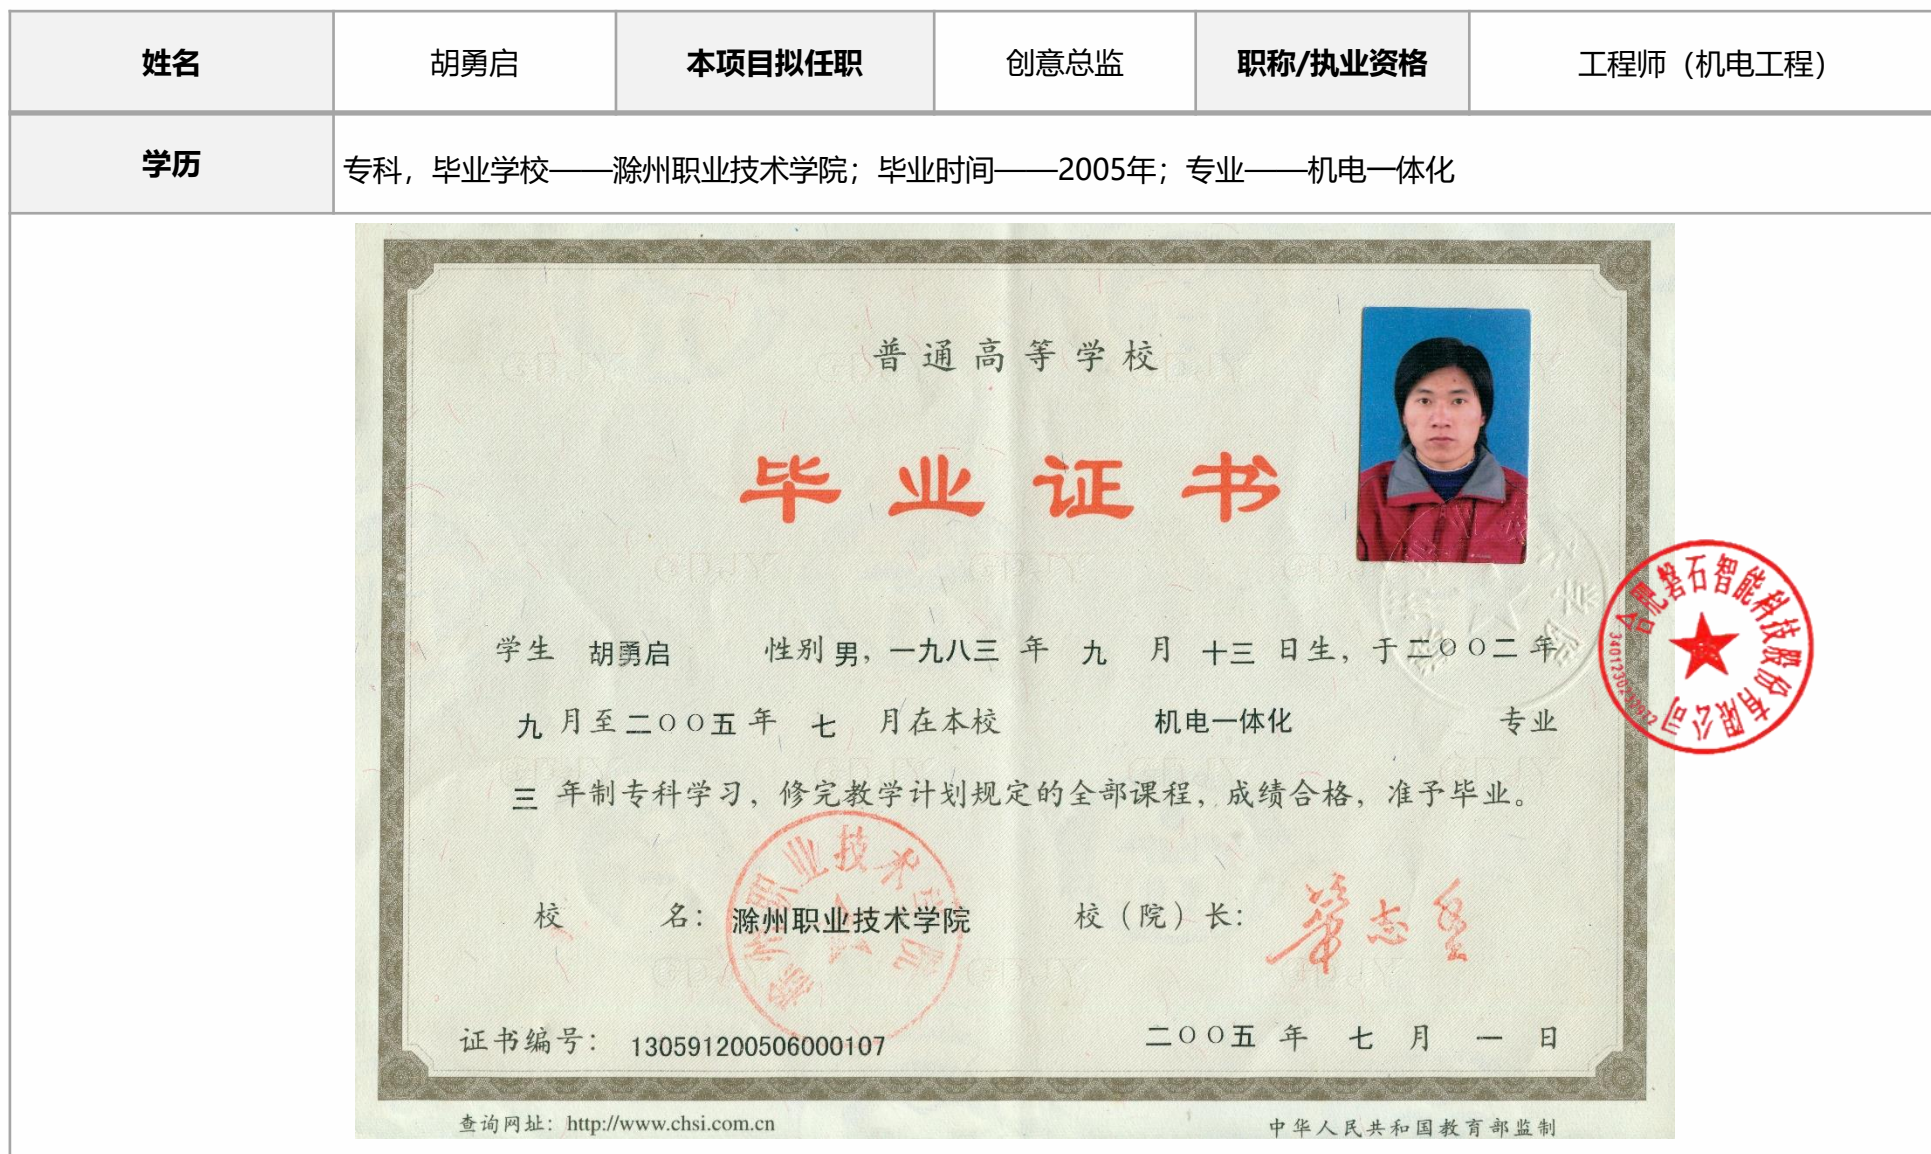 姓名 胡勇启 本项目拟任职 创意总监 职称/执业资格 工程师（机电工程）
学历 专科，毕业学校——滁州职业技术学院；毕业时间——2005年；专业——机电一体化
普通高等学校
毕业证书
学生 胡勇启 性别 男，一九八三 年 九 月 十三 日生，于二〇〇二年
九 月至二〇〇五 年 七 月在本校 机电一体化 专业
三 年制专科学习，修完教学计划规定的全部课程，成绩合格，准予毕业。
合肥磐石智能科技股份有限公司
校 名：滁州职业技术学院 校（院）长：
滁州职业技术学院
证书编号： 130591200506000107 二〇〇五 年 七 月 一 日
查询网址：http://www.chsi.com.cn 中华人民共和国教育部监制